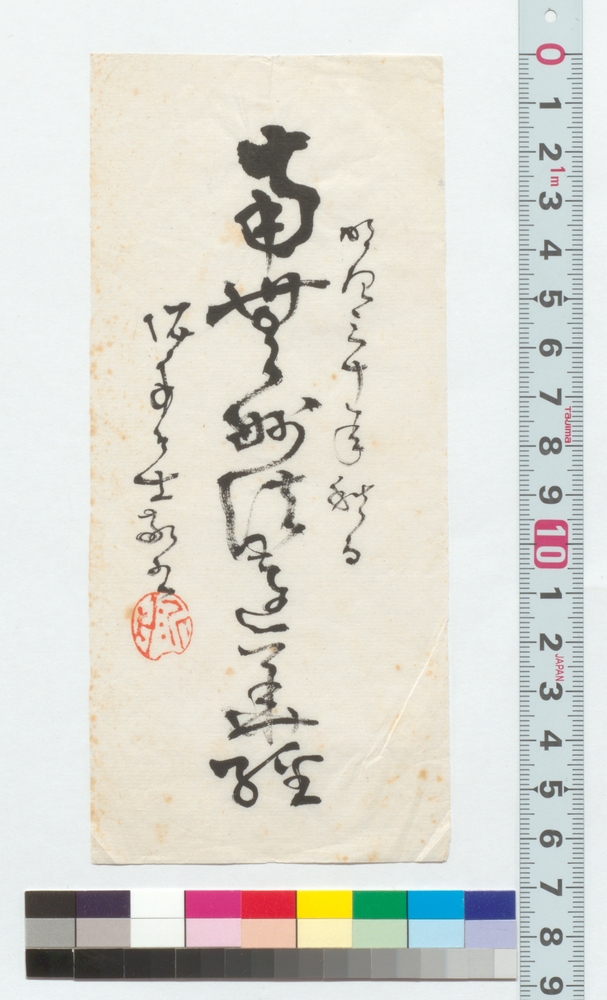 明治三十年秋日
南無妙法蓮華経
居士敬書
0
1
2
1m
3
4
5
6
7
Tajima
8
9
10
1
2
JAPAN
3
4
5
6
7
8
9